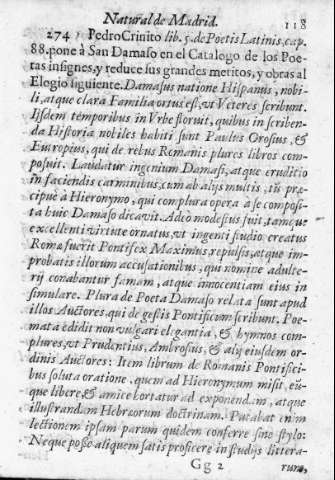 Natural de Madrid.
118
274 Pedro Crinito lib. 5. de Poetis Latinis, cap.
88. pone à San Damaso en el Catalogo de los Poe-
tas insignes, y reduce sus grandes meritos, y obras al
Elogio siguiente. Damasus natione Hispanus, nobi-
li, atque clara Familia ortus est, vt Veteres scribunt.
Iisdem temporibus in Vrbe floruit, quibus in scriben-
da Historia nobiles habiti sunt Paulus Orosius, &
Eutropius, qui de rebus Romanis plures libros com-
posuit. Laudatur ingenium Damasi, atque eruditio
in faciendis carminibus, cum ab alijs multis, tũ præ-
cipuè à Hieronymo, qui complura opera à se composi-
ta huic Damaso dicavit. Adeo modestus fuit, tamque
excellenti virtute ornatus, vt ingenti studio creatus
Romæ fuerit Pontifex Maximus, repulsis, atque im-
probatis illorum accusationibus, qui nomine adulte-
rij conabantur famam, atque innocentiam eius in
simulare. Plura de Poeta Damaso relata sunt apud
illos Auctores, qui de gestis Pontificum scribunt. Poe-
mata edidit non vulgari elegantia, & hymnos com-
plures, vt Prudentius, Ambrosius, & alij eiusdem or-
dinis Auctores: Item librum de Romanis Pontifici-
bus soluta oratione, quem ad Hieronymum misit, eũ-
que libere, & amice hortatur ad exponendam, atque
illustrandam Hebræorum doctrinam. Putabat enim
lectionem ipsam parum quidem conferre sine stylo:
Neque posse aliquem satis proficere in studijs littera-
Gg 2
rum,